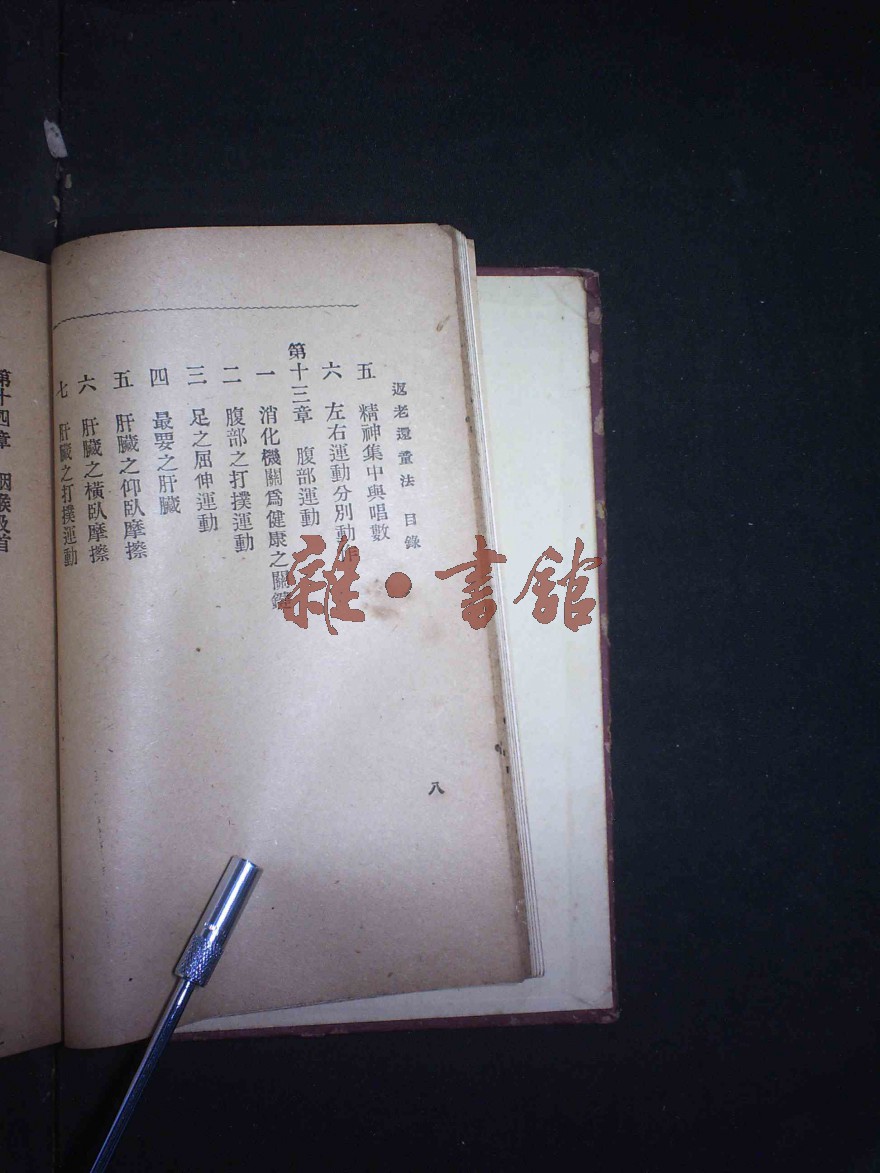 返老還童法 目錄
五 精神集中與唱數
六 左右運動分別動作
第十三章 腹部運動
一 消化機關爲健康之關鍵
二 腹部之打撲運動
三 足之屈伸運動
四 最要之肝臟
五 肝臟之仰臥摩擦
六 肝臟之橫臥摩擦
七 肝臟之打撲運動
八
第十四章
雜·書館